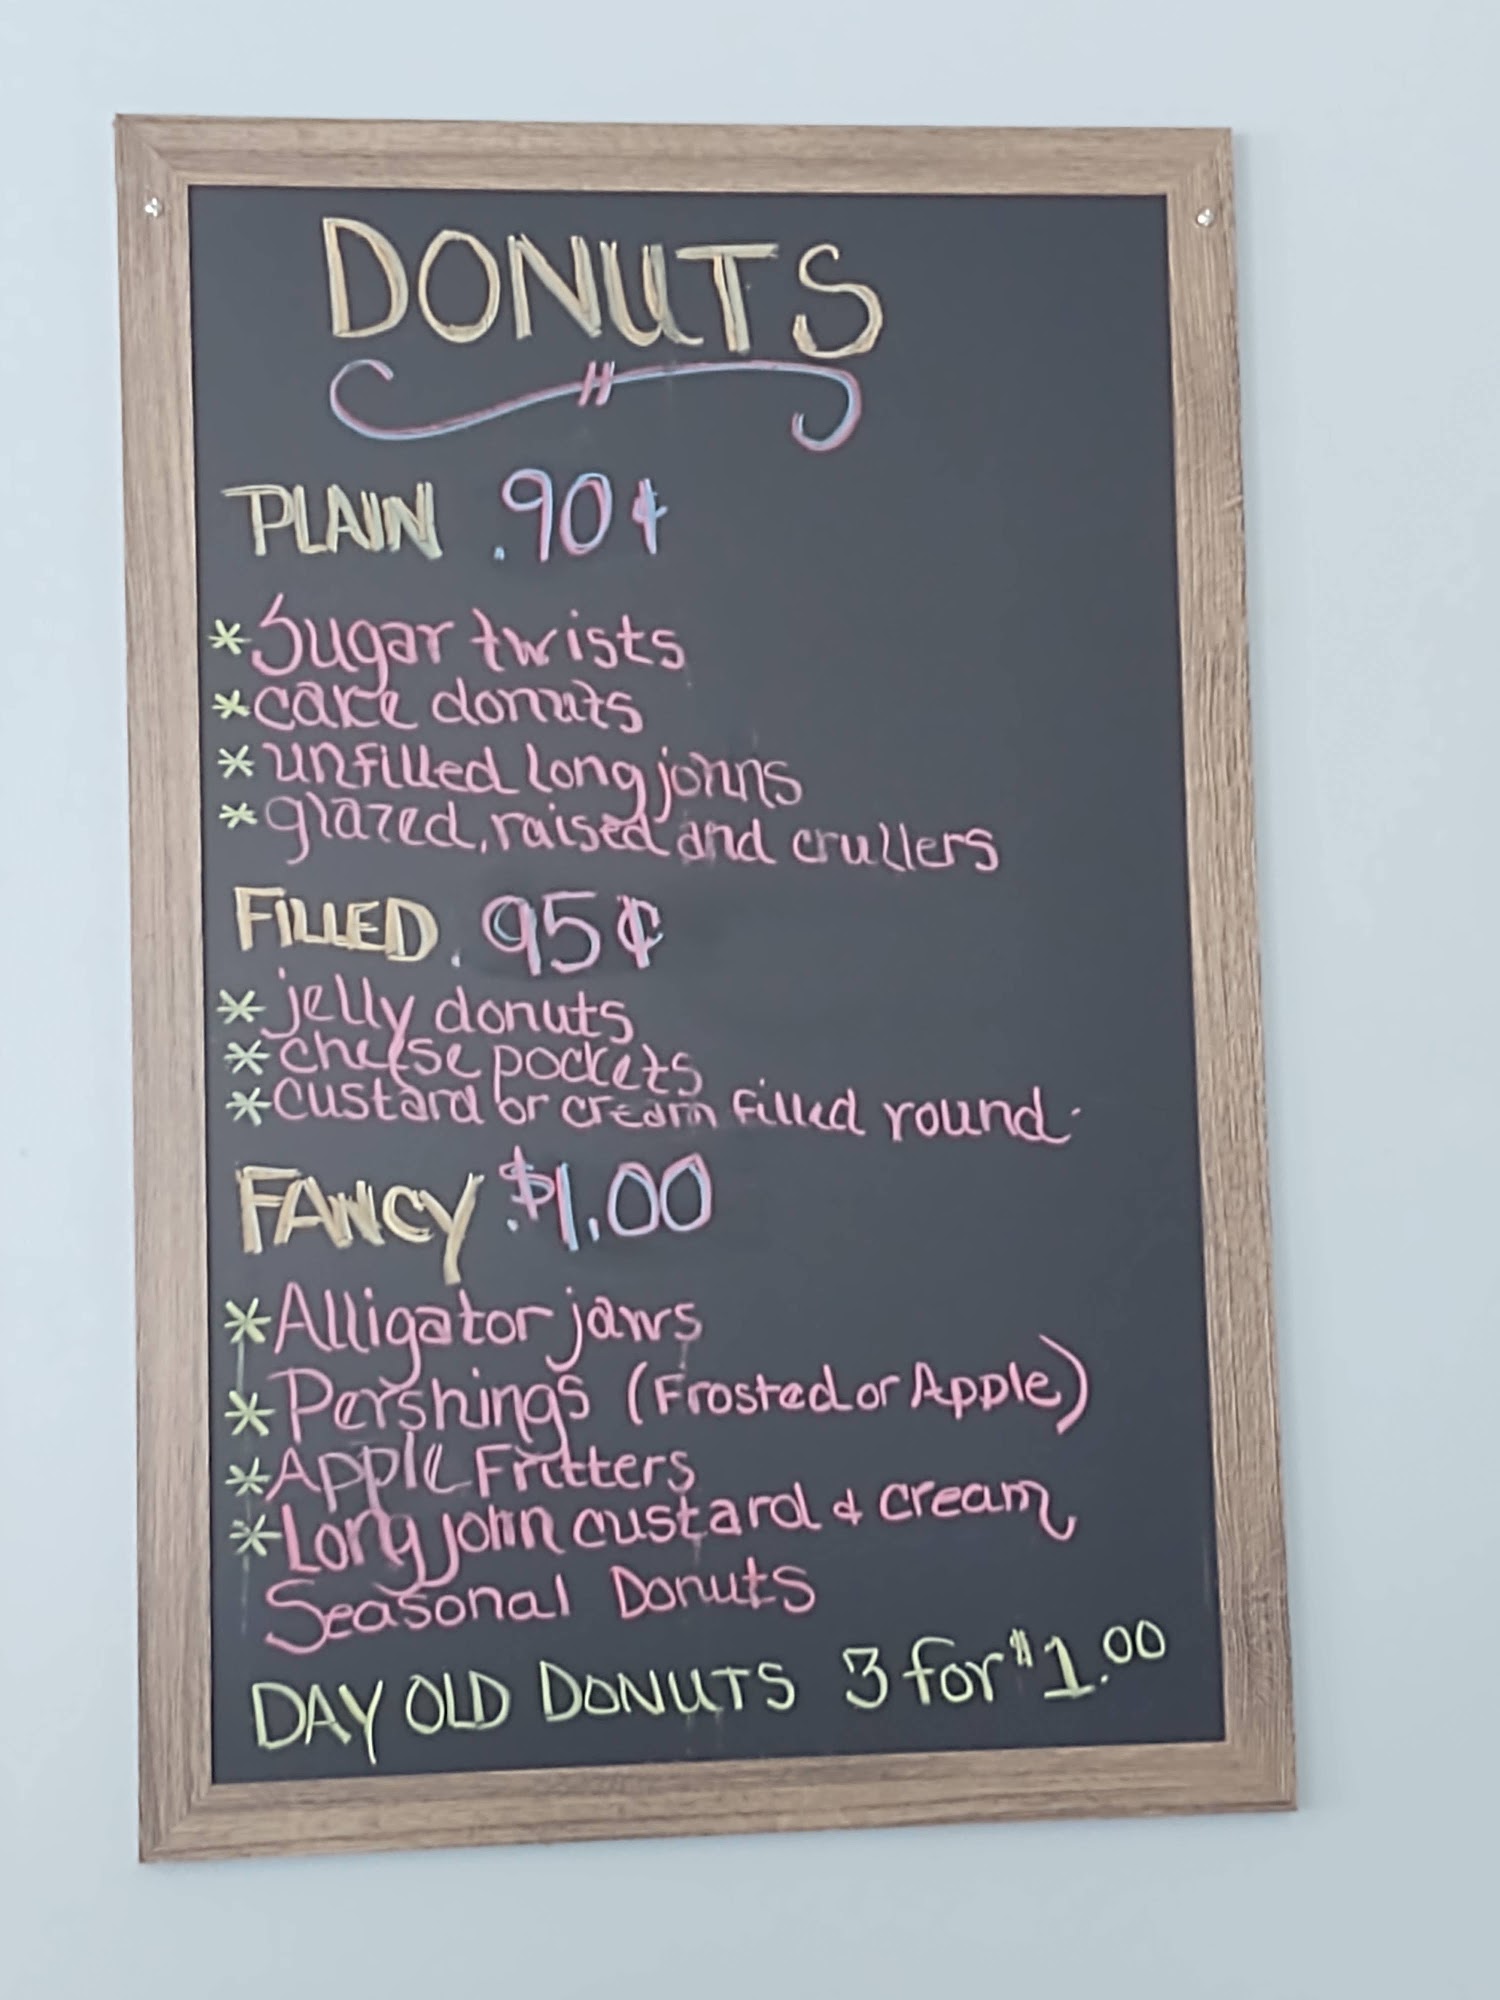 DONUTS
PLAIN .90¢
* Sugar twists
* cake donuts
* unfilled long johns
* glazed, raised and crullers
FILLED .95¢
* jelly donuts
* cheese pockets
* custard or cream filled round
FANCY .$1.00
* Alligator jaws
* Pershings (Frosted or Apple)
* Apple Fritters
* Long john custard & cream
Seasonal Donuts
DAY OLD DONUTS 3 for $1.00